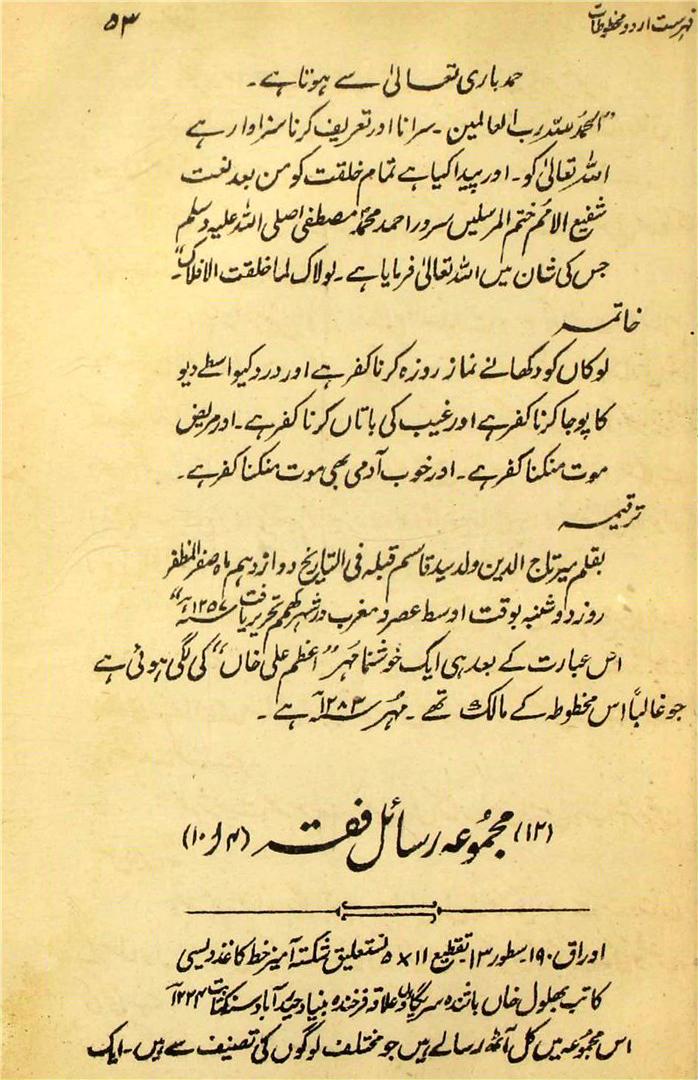 فہرست اردو مخطوطات ۵۳
حمد باری تعالیٰ سے ہوتا ہے۔
"الحمد للہ رب العالمین۔ سرانا اور تعریف کرنا سزاوار ہے
اللہ تعالیٰ کو۔ اور پیدا کیا ہے تمام خلقت کو من بعد نعت
شفیع الامم ختم المرسلیں سرور احمد محمد مصطفیٰ صلی اللہ علیہ وسلم
جس کی شان میں اللہ تعالیٰ فرمایا ہے۔ لولاک لما خلقت الافلاک"۔
خاتمہ
لوکاں کو دکھانے نماز روزہ کرنا کفر ہے اور درد کیواسطے دیو
کا پوجا کرنا کفر ہے اور غیب کی باتاں کرنا کفر ہے۔ اور مریض
موت منگنا کفر ہے۔ اور خوب آدمی بھی موت منگنا کفر ہے۔
ترقیمہ
بقلم میر تاج الدین ولد سید قاسم قبلہ فی التاریخ دوازدہم ماہ صفر المظفر
روز دوشنبہ بوقت اوسط عصر و مغرب در شہر کھمم تحریر یافت سنہ ۱۲۵۷ھ"
اس عبارت کے بعد ہی ایک خوشنما مہر "اعظم علی خاں" کی لگی ہوئی ہے
جو غالباً اس مخطوطہ کے مالک تھے۔ مہر سنہ ۱۲۸۳ ہے۔
(۱۲) مجموعہ رسائل فقہ (۴ و ۱۰)
اوراق ۱۹۰۔ سطور ۱۳ تقطیع ۱۱ × ۵ نستعلیق شکستہ آمیز خط کاغذ دیسی
کاتب بھلول خاں باشندہ علاقہ فرخندہ بنیاد حیدرآباد سنہ کتابت ۱۲۲۴
اس مجموعہ میں کل آٹھ رسالے ہیں جو مختلف لوگوں کی تصنیف سے ہیں۔ ایک